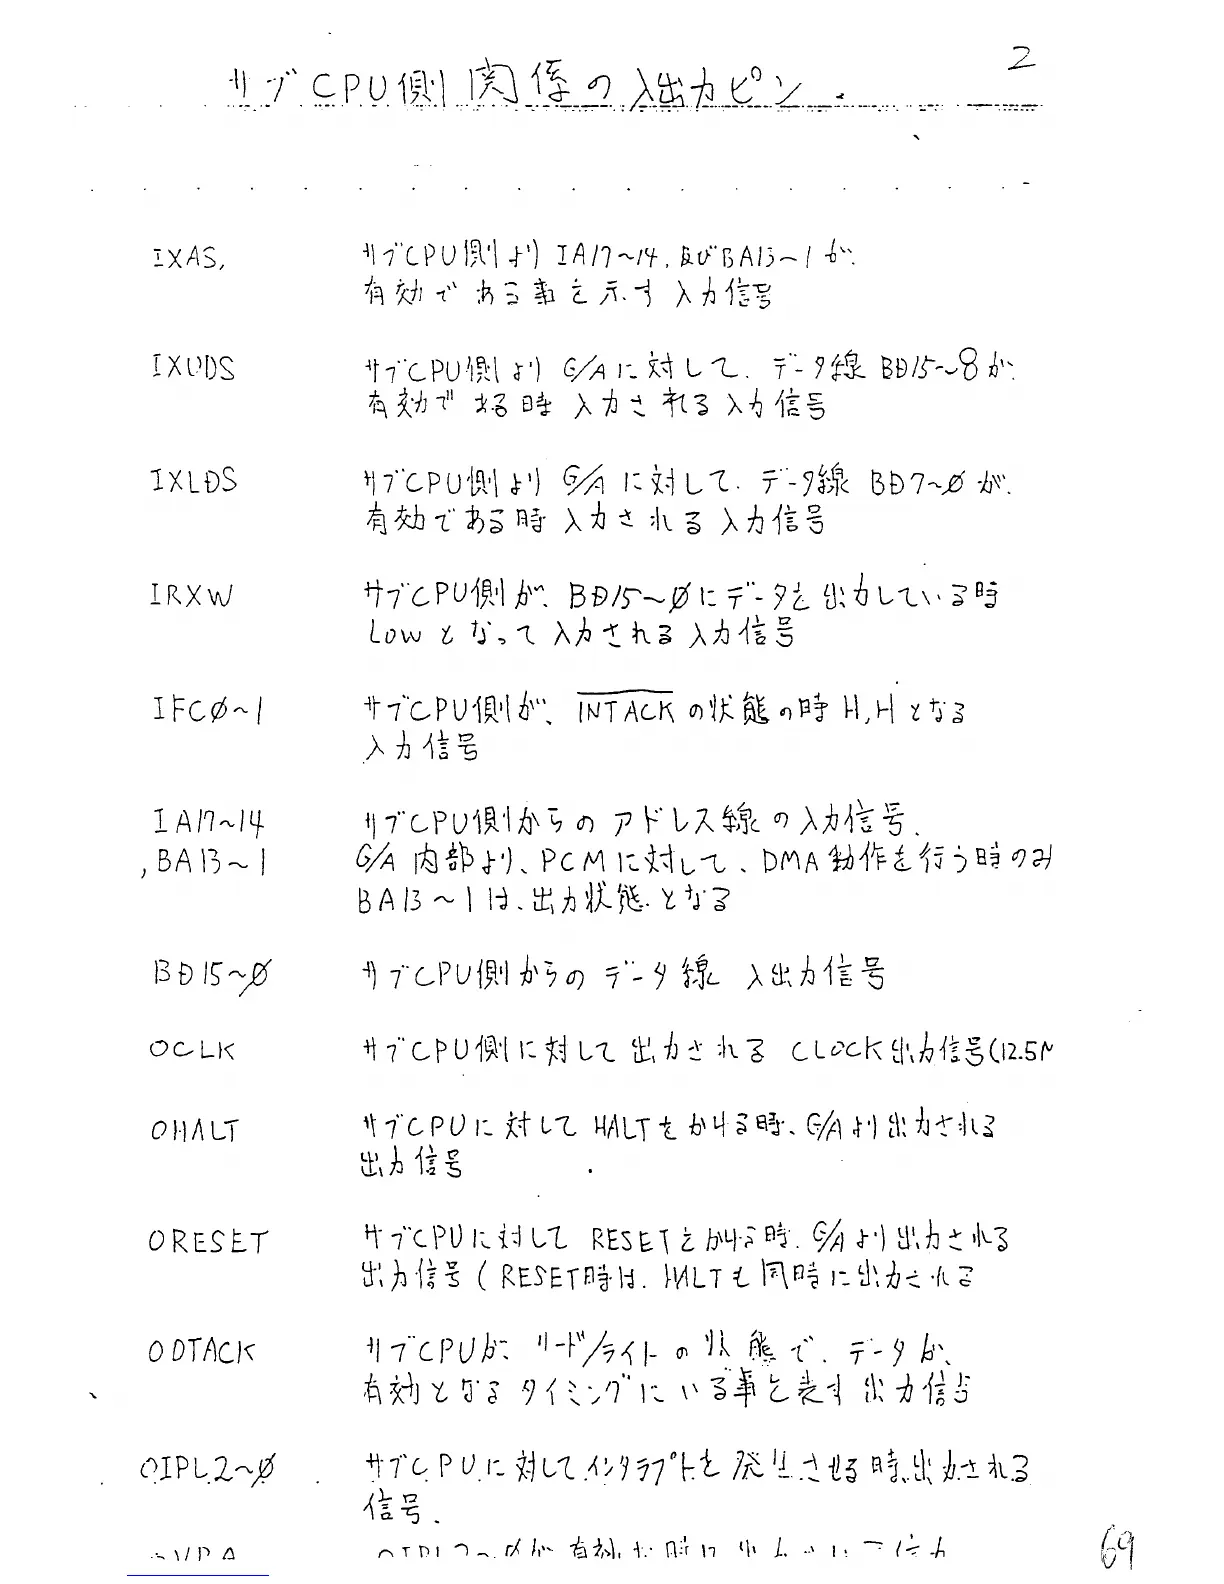 2
サブCPU側関係の入出力ピン.
IXAS, サブCPU側より IA17~14, 及びBA13~1が、
有効である事を示す入力信号
IXUDS サブCPU側より G/Aに対して、データ線 BD15~8が、
有効である時 入力される入力信号
IXLDS サブCPU側より G/Aに対して、データ線 BD7~0が、
有効である時 入力される入力信号
IRXW サブCPU側が、BD15~0にデータを出力している時
Low となって入力される入力信号
IFC0~1 サブCPU側が、INTACKの状態の時H,Hとなる
入力信号
IA17~14 サブCPU側からのアドレス線の入力信号.
,BA13~1 G/A内部より、PCMに対して、DMA動作を行う時のみ
BA13~1は、出力状態となる
BD15~0 サブCPU側からの データ線 入出力信号
OCLK サブCPU側に対して出力される CLOCK出力信号(12.5M
OHALT サブCPUに対して HALTをかける時、G/Aより出力される
出力信号
ORESET サブCPUに対して RESETをかける時、G/Aより出力される
出力信号 ( RESET時は、HALTも同時に出力される
ODTACK サブCPUが、リード/ライトの状態で、データが、
有効となるタイミングにいる事を表す出力信号
OIPL2~0 サブCPUに対してインタラプトを発生させる時、出力される
信号.
69